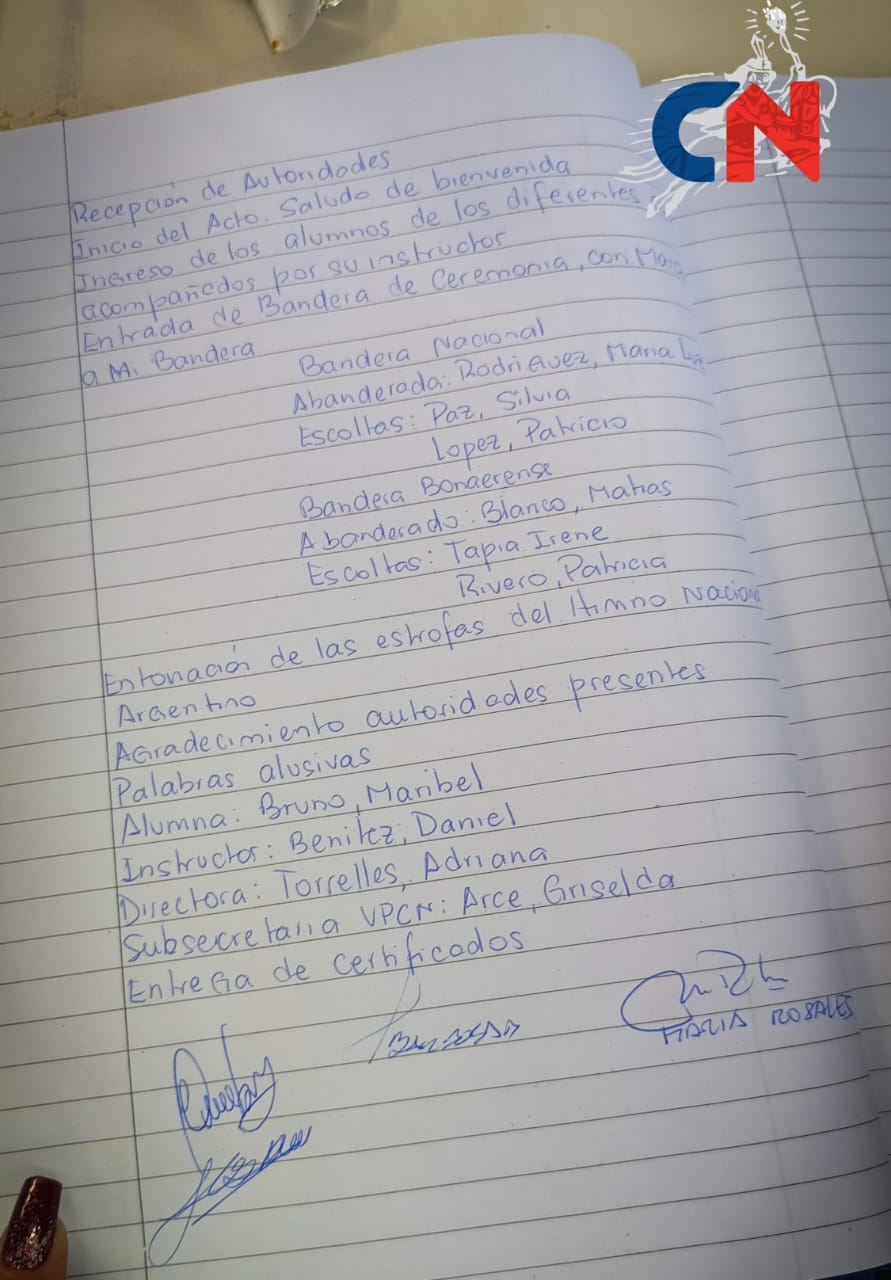 CN
Recepción de Autoridades
Inicio del Acto. Saludo de bienvenida
Ingreso de los alumnos de los diferentes
acompañados por su instructor
Entrada de Bandera de Ceremonia, con
a Mi Bandera
Bandera Nacional
Abanderada: Rodriguez, Maria
Escoltas: Paz, Silvia
Lopez, Patricio
Bandera Bonaerense
Abanderado: Blanco, Matias
Escoltas: Tapia Irene
Rivero, Patricia
Entonación de las estrofas del Himno Nacional
Argentino
Agradecimiento autoridades presentes
Palabras alusivas
Alumna: Bruno, Maribel
Instructor: Benitez, Daniel
Directora: Torrelles, Adriana
Subsecretaria VPCN: Arce, Griselda
Entrega de certificados
MARIA ROSALES